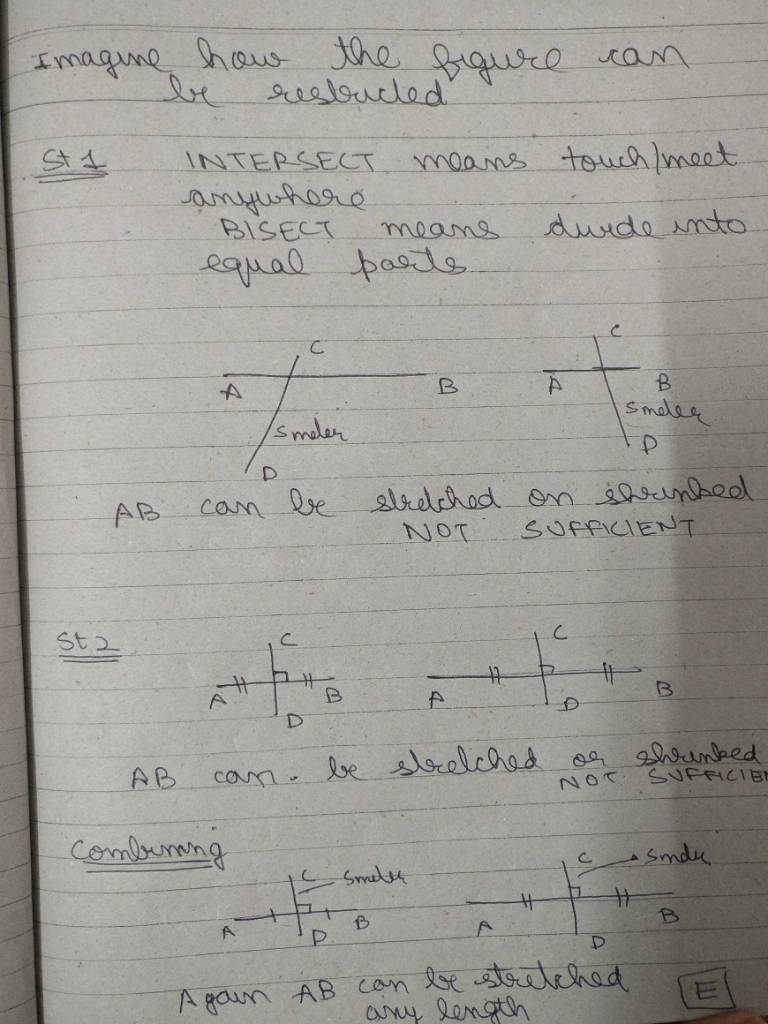 Imagine how the figure can
be restricted
St 1 INTERSECT means touch/meet
anywhere
BISECT means divide into
equal parts
C
A B
5 meter
D
C
A B
5 meter
D
AB can be stretched or shrinked
NOT SUFFICIENT
St 2
C
A B
D
C
A B
D
AB can be stretched or shrinked
NOT SUFFICIEN
Combining
C 5 meter
A D B
C 5 meter
A B
D
Again AB can be stretched
any length
E